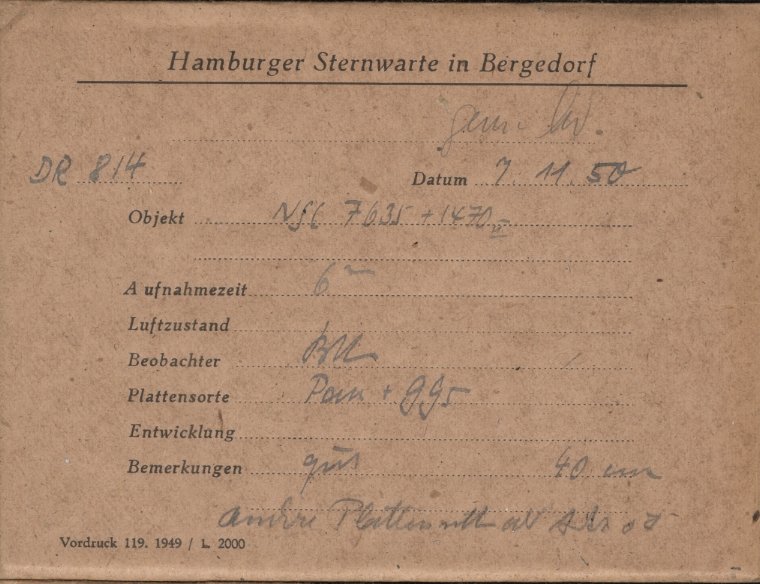 Hamburger Sternwarte in Bergedorf
DR 814
Datum 7. 11. 50
Objekt NGC 7635 + 1470
Aufnahmezeit 6 m
Luftzustand
Beobachter
Plattensorte Pan + GG5
Entwicklung
Bemerkungen gut 40 cm
andere
Vordruck 119. 1949 / L. 2000